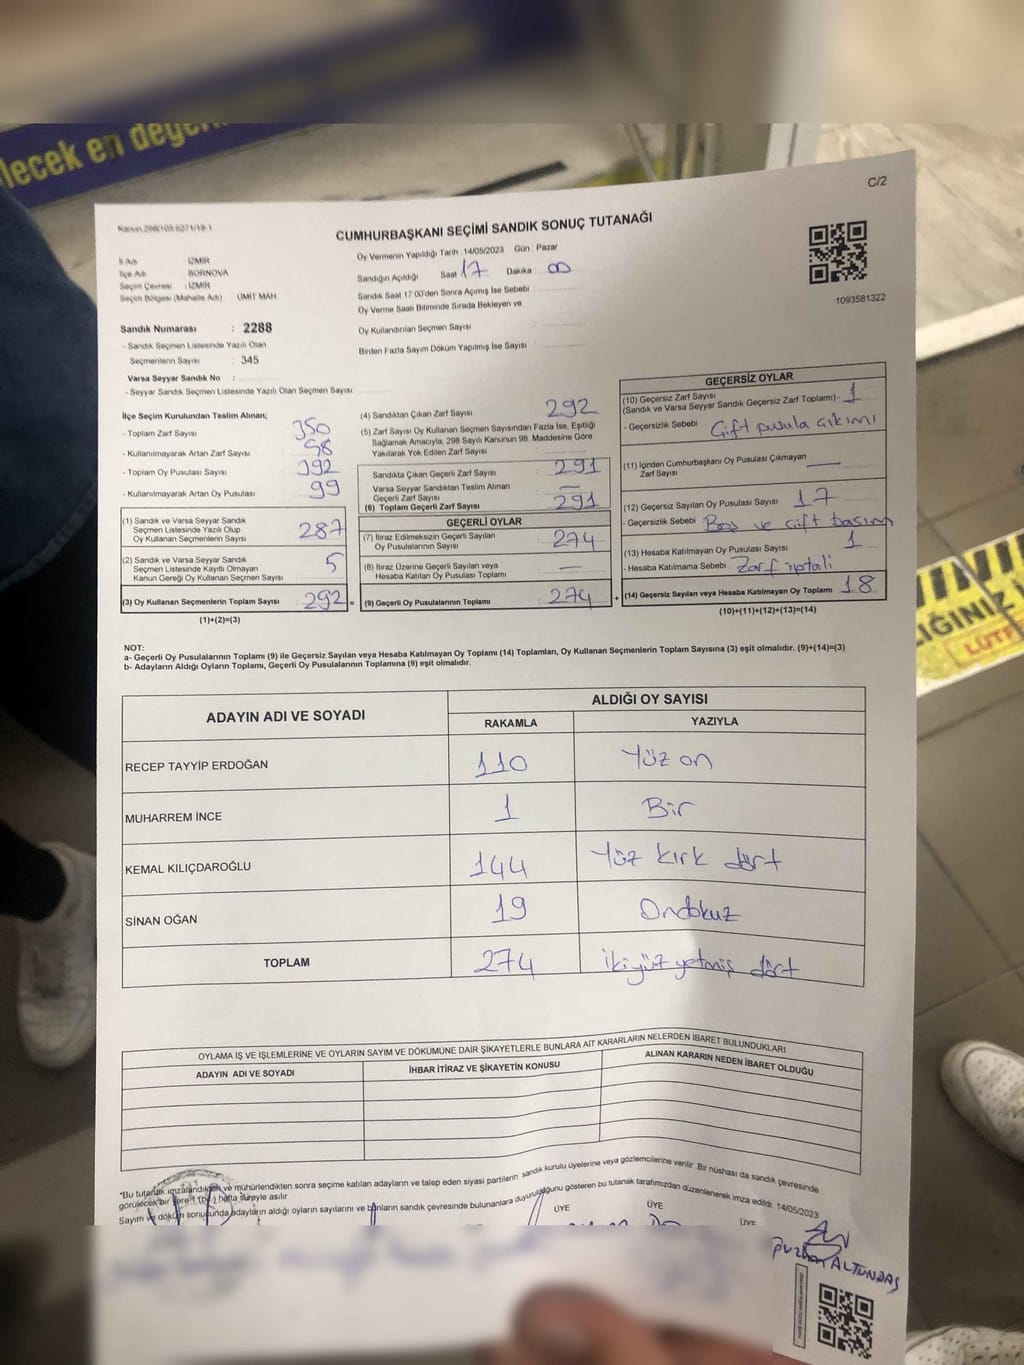 lecek en değer
C/2
Kanun 298/105,6271/18-1
CUMHURBAŞKANI SEÇİMİ SANDIK SONUÇ TUTANAĞI
İl Adı : İZMİR
İlçe Adı BORNOVA
Seçim Çevresi : İZMİR
Seçim Bölgesi (Mahalle Adı) ÜMİT MAH
Sandık Numarası : 2288
- Sandık Seçmen Listesinde Yazılı Olan
Seçmenlerin Sayısı : 345
Varsa Seyyar Sandık No :
- Seyyar Sandık Seçmen Listesinde Yazılı Olan Seçmen Sayısı
Oy Vermenin Yapıldığı Tarih : 14/05/2023 Gün : Pazar
Sandığın Açıldığı Saat 17 Dakika 00
Sandık Saat 17:00'den Sonra Açılmış İse Sebebi
Oy Verme Saati Bitiminde Sırada Bekleyen ve
Oy Kullandırılan Seçmen Sayısı
Birden Fazla Sayım Döküm Yapılmış İse Sayısı
1093581322
İlçe Seçim Kurulundan Teslim Alınan;
- Toplam Zarf Sayısı 350
- Kullanılmayarak Artan Zarf Sayısı 58
- Toplam Oy Pusulası Sayısı 392
- Kullanılmayarak Artan Oy Pusulası 99
(1) Sandık ve Varsa Seyyar Sandık
Seçmen Listesinde Yazılı Olup
Oy Kullanan Seçmenlerin Sayısı : 287
(2) Sandık ve Varsa Seyyar Sandık
Seçmen Listesinde Kayıtlı Olmayan
Kanun Gereği Oy Kullanan Seçmen Sayısı : 5
(3) Oy Kullanan Seçmenlerin Toplam Sayısı : 292 =
(1)+(2)=(3)
(4) Sandıktan Çıkan Zarf Sayısı : 292
(5) Zarf Sayısı Oy Kullanan Seçmen Sayısından Fazla İse, Eşitliği
Sağlamak Amacıyla; 298 Sayılı Kanunun 98. Maddesine Göre
Yakılarak Yok Edilen Zarf Sayısı
Sandıkta Çıkan Geçerli Zarf Sayısı : 291
Varsa Seyyar Sandıktan Teslim Alınan
Geçerli Zarf Sayısı : —
(6) Toplam Geçerli Zarf Sayısı : 291
GEÇERLİ OYLAR
(7) İtiraz Edilmeksizin Geçerli Sayılan
Oy Pusulalarının Sayısı : 274
(8) İtiraz Üzerine Geçerli Sayılan veya
Hesaba Katılan Oy Pusulası Toplamı : —
(9) Geçerli Oy Pusulalarının Toplamı : 274 +
GEÇERSİZ OYLAR
(10) Geçersiz Zarf Sayısı
(Sandık ve Varsa Seyyar Sandık Geçersiz Zarf Toplamı) : 1
- Geçersizlik Sebebi : Çift pusula çıkımı
(11) İçinden Cumhurbaşkanı Oy Pusulası Çıkmayan
Zarf Sayısı : —
(12) Geçersiz Sayılan Oy Pusulası Sayısı : 17
- Geçersizlik Sebebi : Boş ve çift basım
(13) Hesaba Katılmayan Oy Pusulası Sayısı : 1
- Hesaba Katılmama Sebebi : Zarf iptali
(14) Geçersiz Sayılan veya Hesaba Katılmayan Oy Toplamı : 18
(10)+(11)+(12)+(13)=(14)
NOT:
a- Geçerli Oy Pusulalarının Toplamı (9) ile Geçersiz Sayılan veya Hesaba Katılmayan Oy Toplamı (14) Toplamları, Oy Kullanan Seçmenlerin Toplam Sayısına (3) eşit olmalıdır. (9)+(14)=(3)
b- Adayların Aldığı Oyların Toplamı, Geçerli Oy Pusulalarının Toplamına (9) eşit olmalıdır.
ADAYIN ADI VE SOYADI
ALDIĞI OY SAYISI
RAKAMLA YAZIYLA
RECEP TAYYİP ERDOĞAN 110 Yüz on
MUHARREM İNCE 1 Bir
KEMAL KILIÇDAROĞLU 144 Yüz kırk dört
SİNAN OĞAN 19 Ondokuz
TOPLAM 274 ikiyüz yetmiş dört
OYLAMA İŞ VE İŞLEMLERİNE VE OYLARIN SAYIM VE DÖKÜMÜNE DAİR ŞİKAYETLERLE BUNLARA AİT KARARLARIN NELERDEN İBARET BULUNDUKLARI
ADAYIN ADI VE SOYADI
İHBAR İTİRAZ VE ŞİKAYETİN KONUSU
ALINAN KARARIN NEDEN İBARET OLDUĞU
"Bu tutanak imzalandıktan ve mühürlendikten sonra seçime katılan adayların ve talep eden siyasi partilerin sandık kurulu üyelerine veya gözlemcilerine verilir. Bir nüshası da sandık çevresinde
görülecek bir yere 1 (bir) hafta süreyle asılır.
Sayım ve döküm sonucunda adayların aldığı oyların sayılarını ve bunların sandık çevresinde bulunanlara duyurulduğunu gösteren bu tutanak tarafımızdan düzenlenerek imza edildi. 14/05/2023
ÜYE
ÜYE
ÜYE
ALTUNDAŞ
IĞINIZ
LÜTF